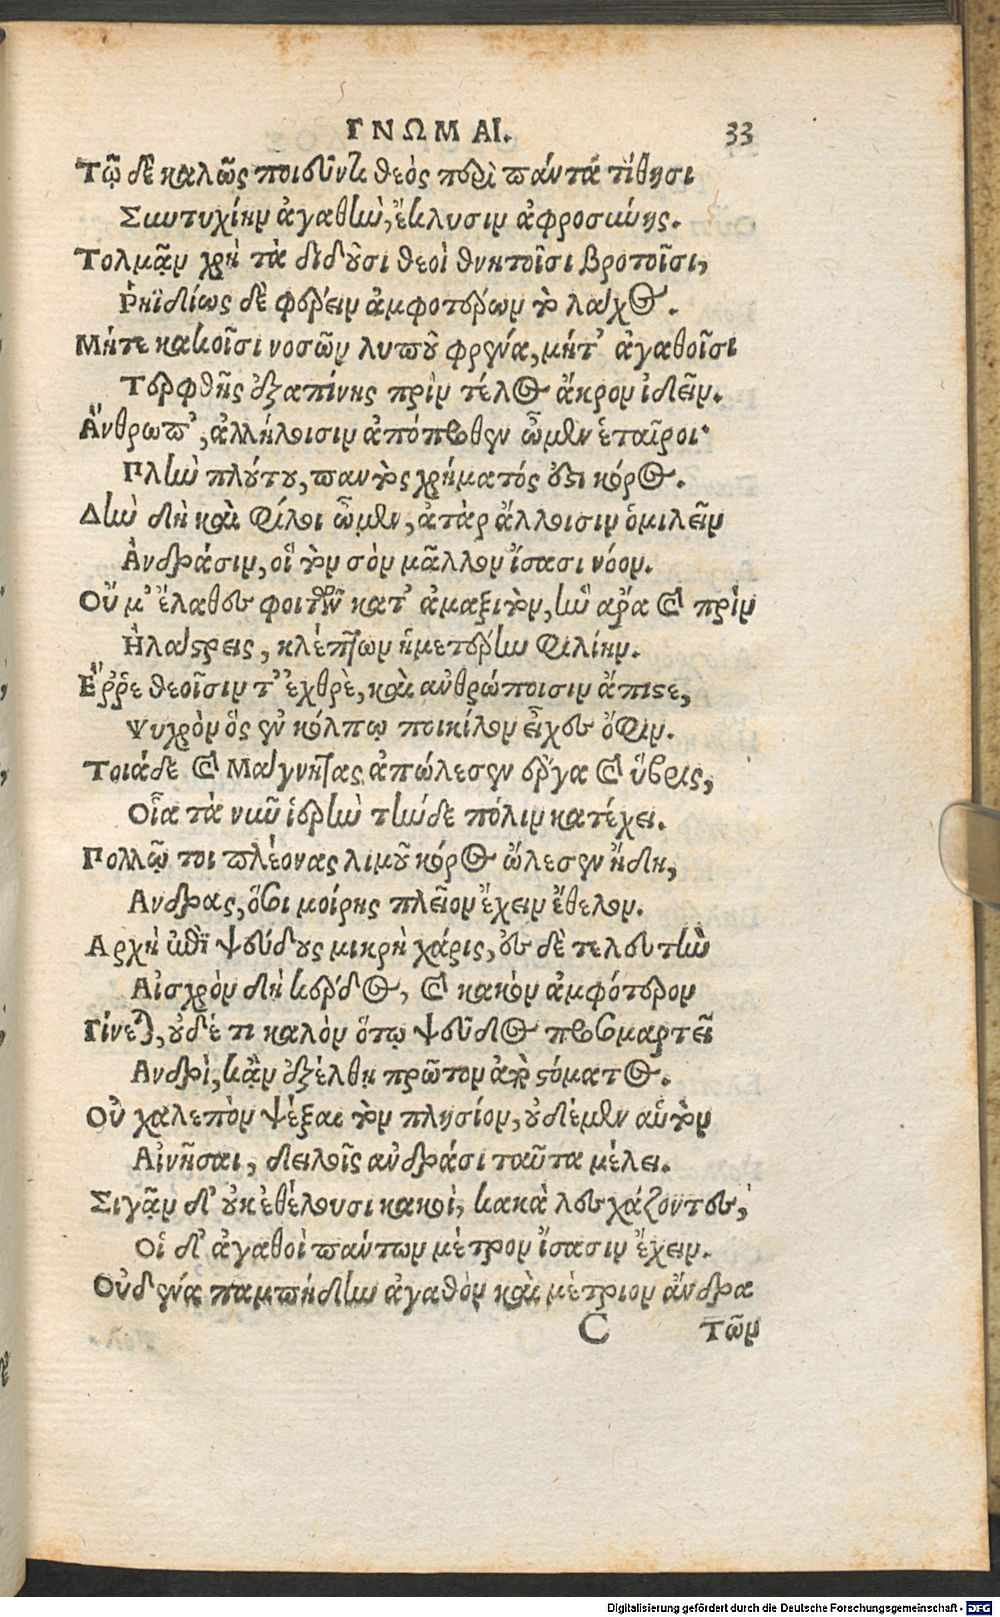 ΓΝΩΜΑΙ. 33
Τῷ δὲ καλῶς ποιοῦντι θεὸς περὶ πάντα τίθησι
Συντυχίην ἀγαθὴν, ἔκλυσιν ἀφροσύνης.
Τολμᾷν χρὴ τὰ διδοῦσι θεοὶ θνητοῖσι βροτοῖσι,
Ῥηϊδίως δὲ φέρειν ἀμφοτέρων τὸ λάχος.
Μήτε κακοῖσι νοσῶν λυποῦ φρένα, μήτ' ἀγαθοῖσι
Τερφθῇς ἐξαπίνης πρὶν τέλος ἄκρον ἰδεῖν.
Ἄνθρωπ', ἀλλήλοισιν ἀπόπροθεν ὦμεν ἑταῖροι·
Πλὴν πλούτου, παντός χρήματός ἐστι κόρος.
Δὴν δὴ καὶ φίλοι ὦμεν, ἀτὰρ ἄλλοισιν ὁμιλεῖν
Ἀνδράσιν, οἳ τὸν σὸν μᾶλλον ἴσασι νόον.
Οὔ μ' ἔλαθες φοιτῶν κατ' ἀμαξιτὸν, ἣν ἄρα καὶ πρὶν
Ἠλάστρεις, κλέπτων ἡμετέρην φιλίην.
Ἔῤῥε θεοῖσιν τ' ἐχθρὲ, καὶ ἀνθρώποισιν ἄπιστε,
Ψυχρὸν ὃς ἐν κόλπῳ ποικίλον εἶχες ὄφιν.
Τοιάδε καὶ Μάγνητας ἀπώλεσεν ἔργα καὶ ὕβρις,
Οἷα τὰ νῦν ἱερὴν τήνδε πόλιν κατέχει.
Πολλῷ τοι πλέονας λιμοῦ κόρος ὤλεσεν ἤδη,
Ἄνδρας, ὅσοι μοίρης πλεῖον ἔχειν ἔθελον.
Ἀρχὴ ἐπὶ ψεύδους μικρὴ χάρις, ἐς δὲ τελευτὴν
Αἰσχρὸν δὴ κέρδος, καὶ κακὸν ἀμφότερον
Γίνεται, οὐδέ τι καλὸν ὅτῳ ψεῦδος προσομαρτεῖ
Ἀνδρὶ, κᾂν ἐξέλθῃ πρῶτον ἀπὸ στόματος.
Οὐ χαλεπὸν ψέξαι τὸν πλησίον, οὐδὲ μὲν αὑτὸν
Αἰνῆσαι, δειλοῖς ἀνδράσι ταῦτα μέλει.
Σιγᾷν δ' οὐκ ἐθέλουσι κακοὶ, κακὰ λεσχάζοντες,
Οἱ δ' ἀγαθοὶ πάντων μέτρον ἴσασιν ἔχειν.
Οὐδένα παμπήδην ἀγαθὸν καὶ μέτριον ἄνδρα
C Τῶν
Digitalisierung gefördert durch die Deutsche Forschungsgemeinschaft - DFG